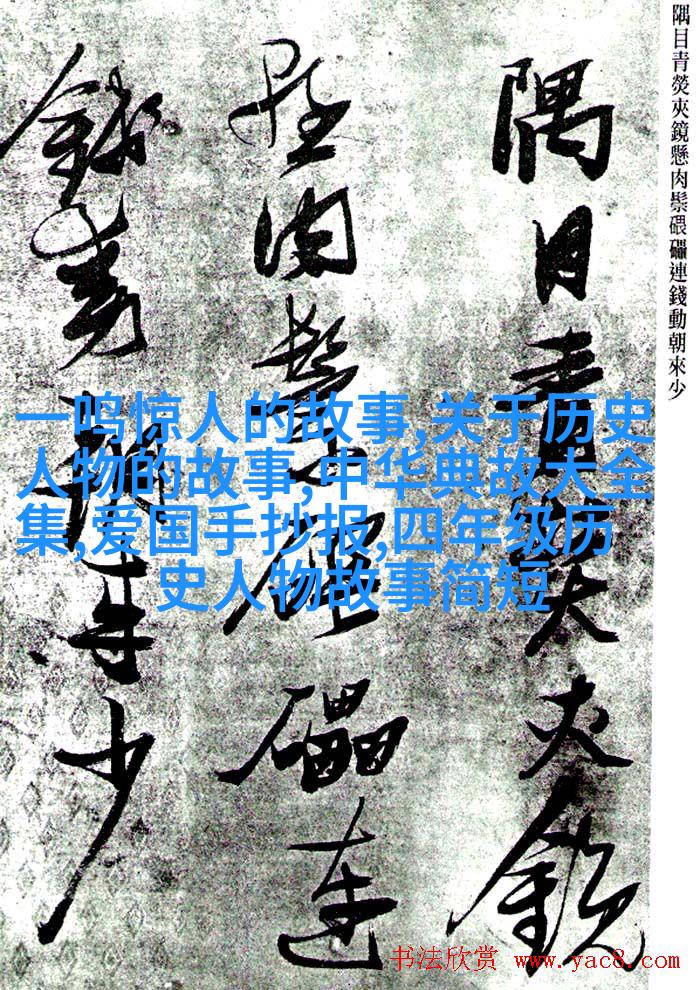 隅目青熒夾鏡懸肉鬃碨礧連錢動朝來少
隅目青熒夾鏡
懸肉鬃碨礧連
錢動朝來少
一鸣惊人的故事,关于历史
人物的故事,中华典故大全
集,爱国手抄报,四年级历
史人物故事简短
书法欣赏 www.yac8.com